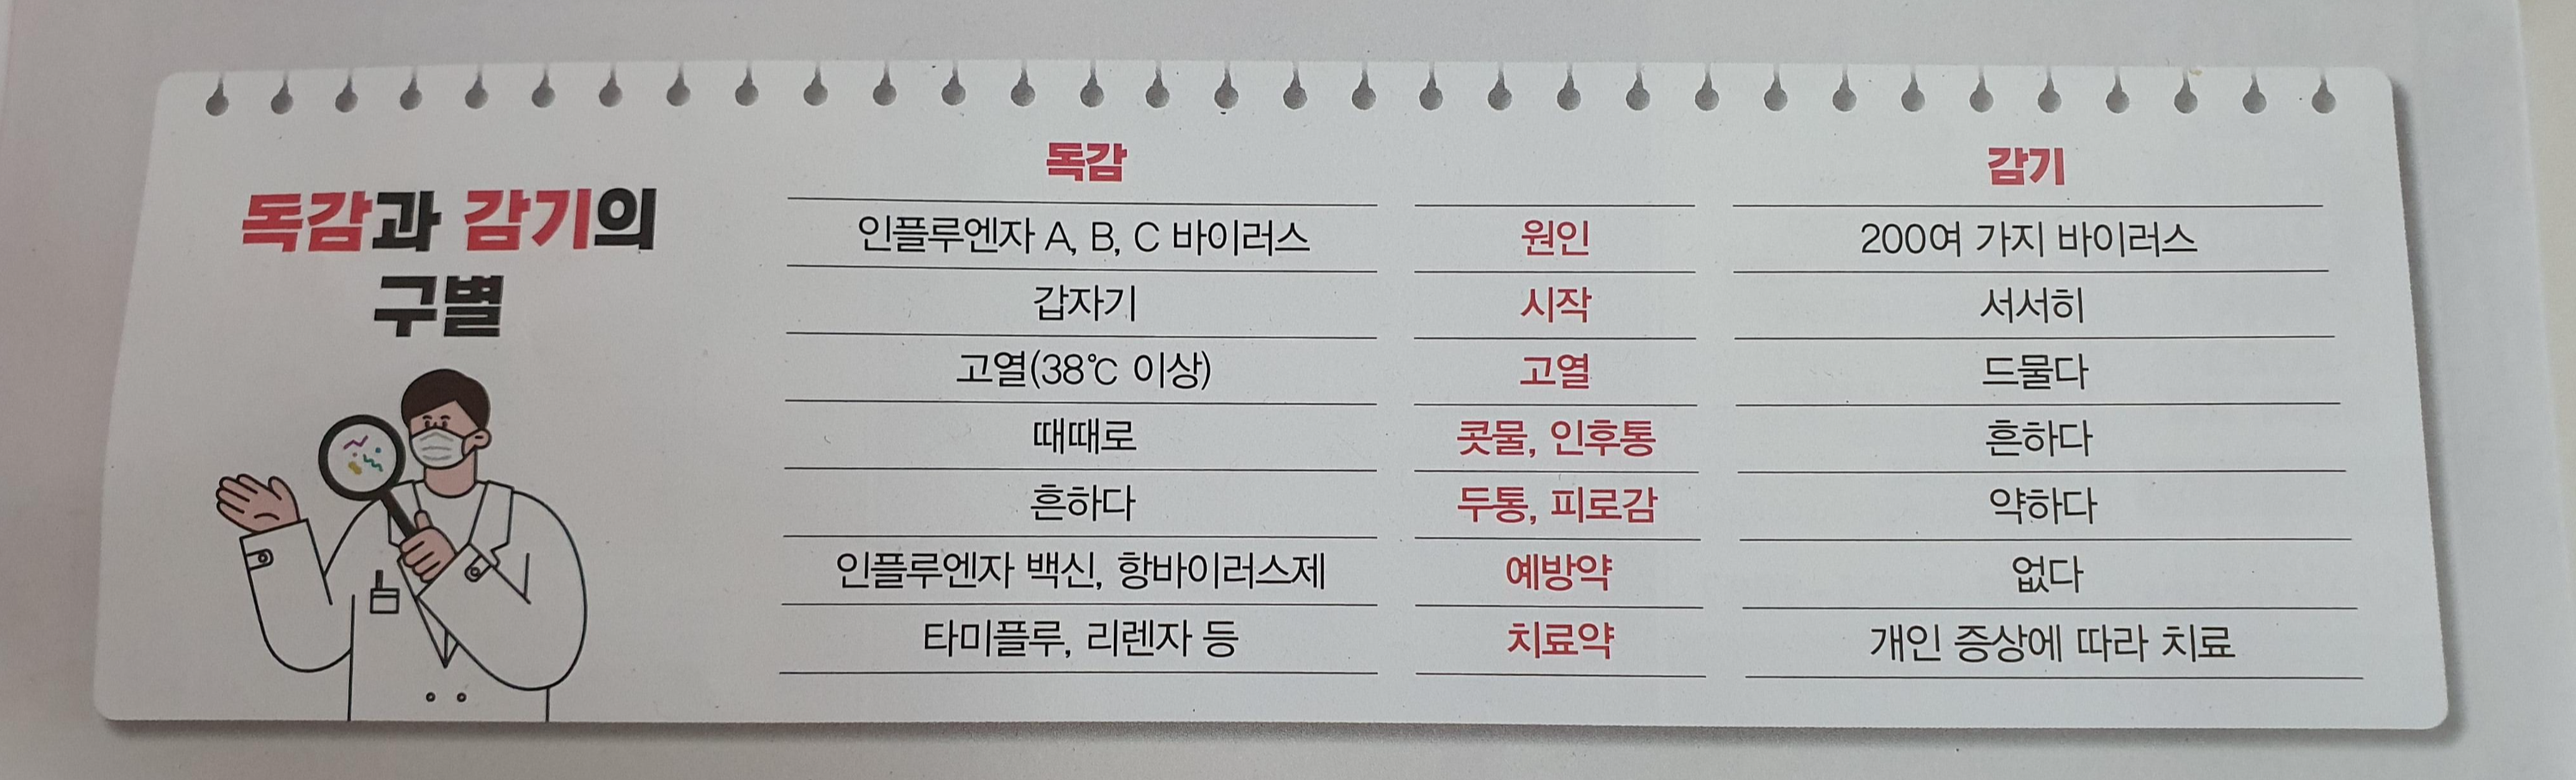 독감과 감기의
구별
독감 감기
인플루엔자 A, B, C 바이러스 원인 200여 가지 바이러스
갑자기 시작 서서히
고열(38℃ 이상) 고열 드물다
때때로 콧물, 인후통 흔하다
흔하다 두통, 피로감 약하다
인플루엔자 백신, 항바이러스제 예방약 없다
타미플루, 리렌자 등 치료약 개인 증상에 따라 치료